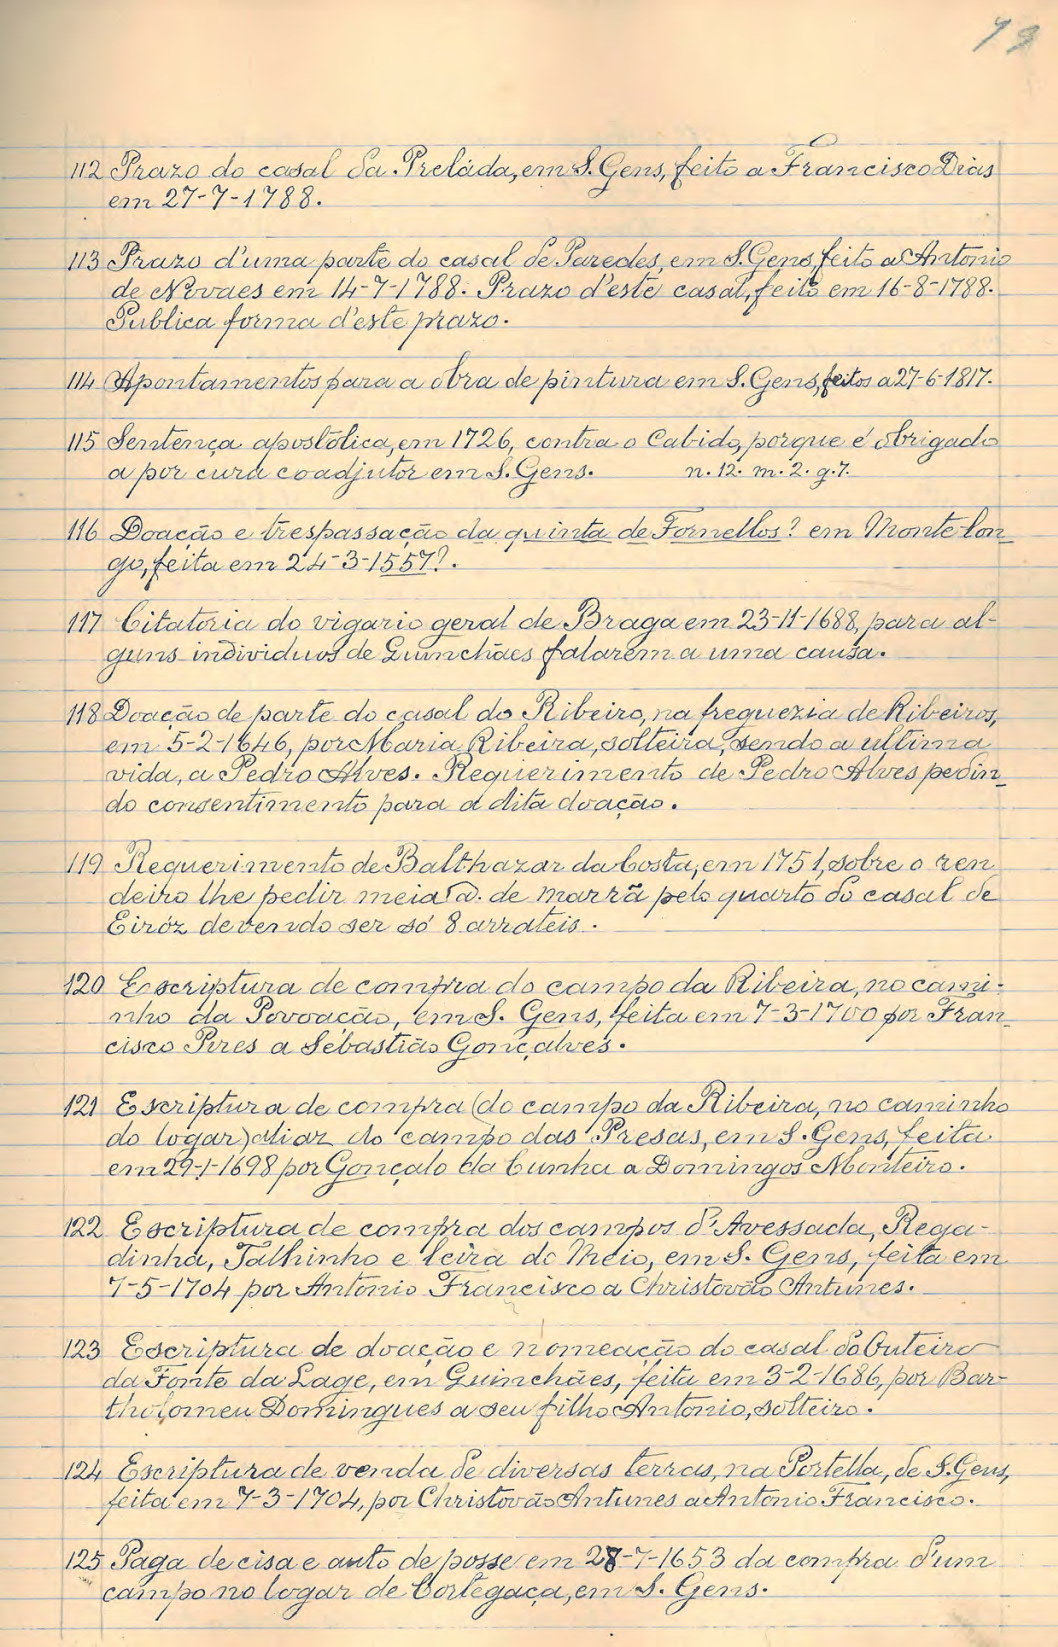 79
112 Prazo do casal da Preláda, em S. Gens, feito a Francisco Dias
em 27-7-1788.
113 Prazo d'uma parte do casal de Paredes, em S. Gens, feito a Antonio
de Novaes em 14-7-1788. Prazo d'este casal, feito em 16-8-1788.
Publica forma d'este prazo.
114 Apontamentos para a obra de pintura em S. Gens, feitos a 27-6-1817.
115 Sentença apostolica, em 1726, contra o Cabido, porque é obrigado
a por cura coadjutor em S. Gens. n. 12. m. 2. g. 7.
116 Doação e trespassação da quinta de Fornellos? em Monte lon-
go, feita em 24-3-1557?.
117 Citatoria do vigario geral de Braga em 23-11-1688, para al-
guns individuos de Guinchães falarem a uma causa.
118 Doação de parte do casal do Ribeiro, na freguezia de Ribeiros,
em 5-2-1646, por Maria Ribeira, solteira, sendo a ultima
vida, a Pedro Alves. Requerimento de Pedro Alves pedin-
do consentimento para a dita doação.
119 Requerimento de Balthazar da Costa, em 1751, sobre o ren
deiro lhe pedir meia @. de marrã pelo quarto do casal de
Eiróz devendo ser só 8 arrateis.
120 Escriptura de compra do campo da Ribeira, no cami-
nho da Povoação, em S. Gens, feita em 7-3-1700 por Fran-
cisco Pires a Sebastião Gonçalves.
121 Escriptura de compra (do campo da Ribeira, no caminho
do logar) aliaz do campo das Presas, em S. Gens, feita
em 29-1-1698 por Gonçalo da Cunha a Domingos Monteiro.
122 Escriptura de compra dos campos d'Avessada, Rega-
dinha, Talhinho e leira do Meio, em S. Gens, feita em
7-5-1704 por Antonio Francisco a Christovão Antunes.
123 Escriptura de doação e nomeação do casal do Outeiro
da Fonte da Lage, em Guinchães, feita em 3-2-1686, por Bar-
tholomeu Domingues a seu filho Antonio, solteiro.
124 Escriptura de venda de diversas terras, na Portella, de S. Gens,
feita em 7-3-1704, por Christovão Antunes a Antonio Francisco.
125 Paga de cisa e auto de posse em 28-7-1653 da compra d'um
campo no logar de Cortegaça, em S. Gens.